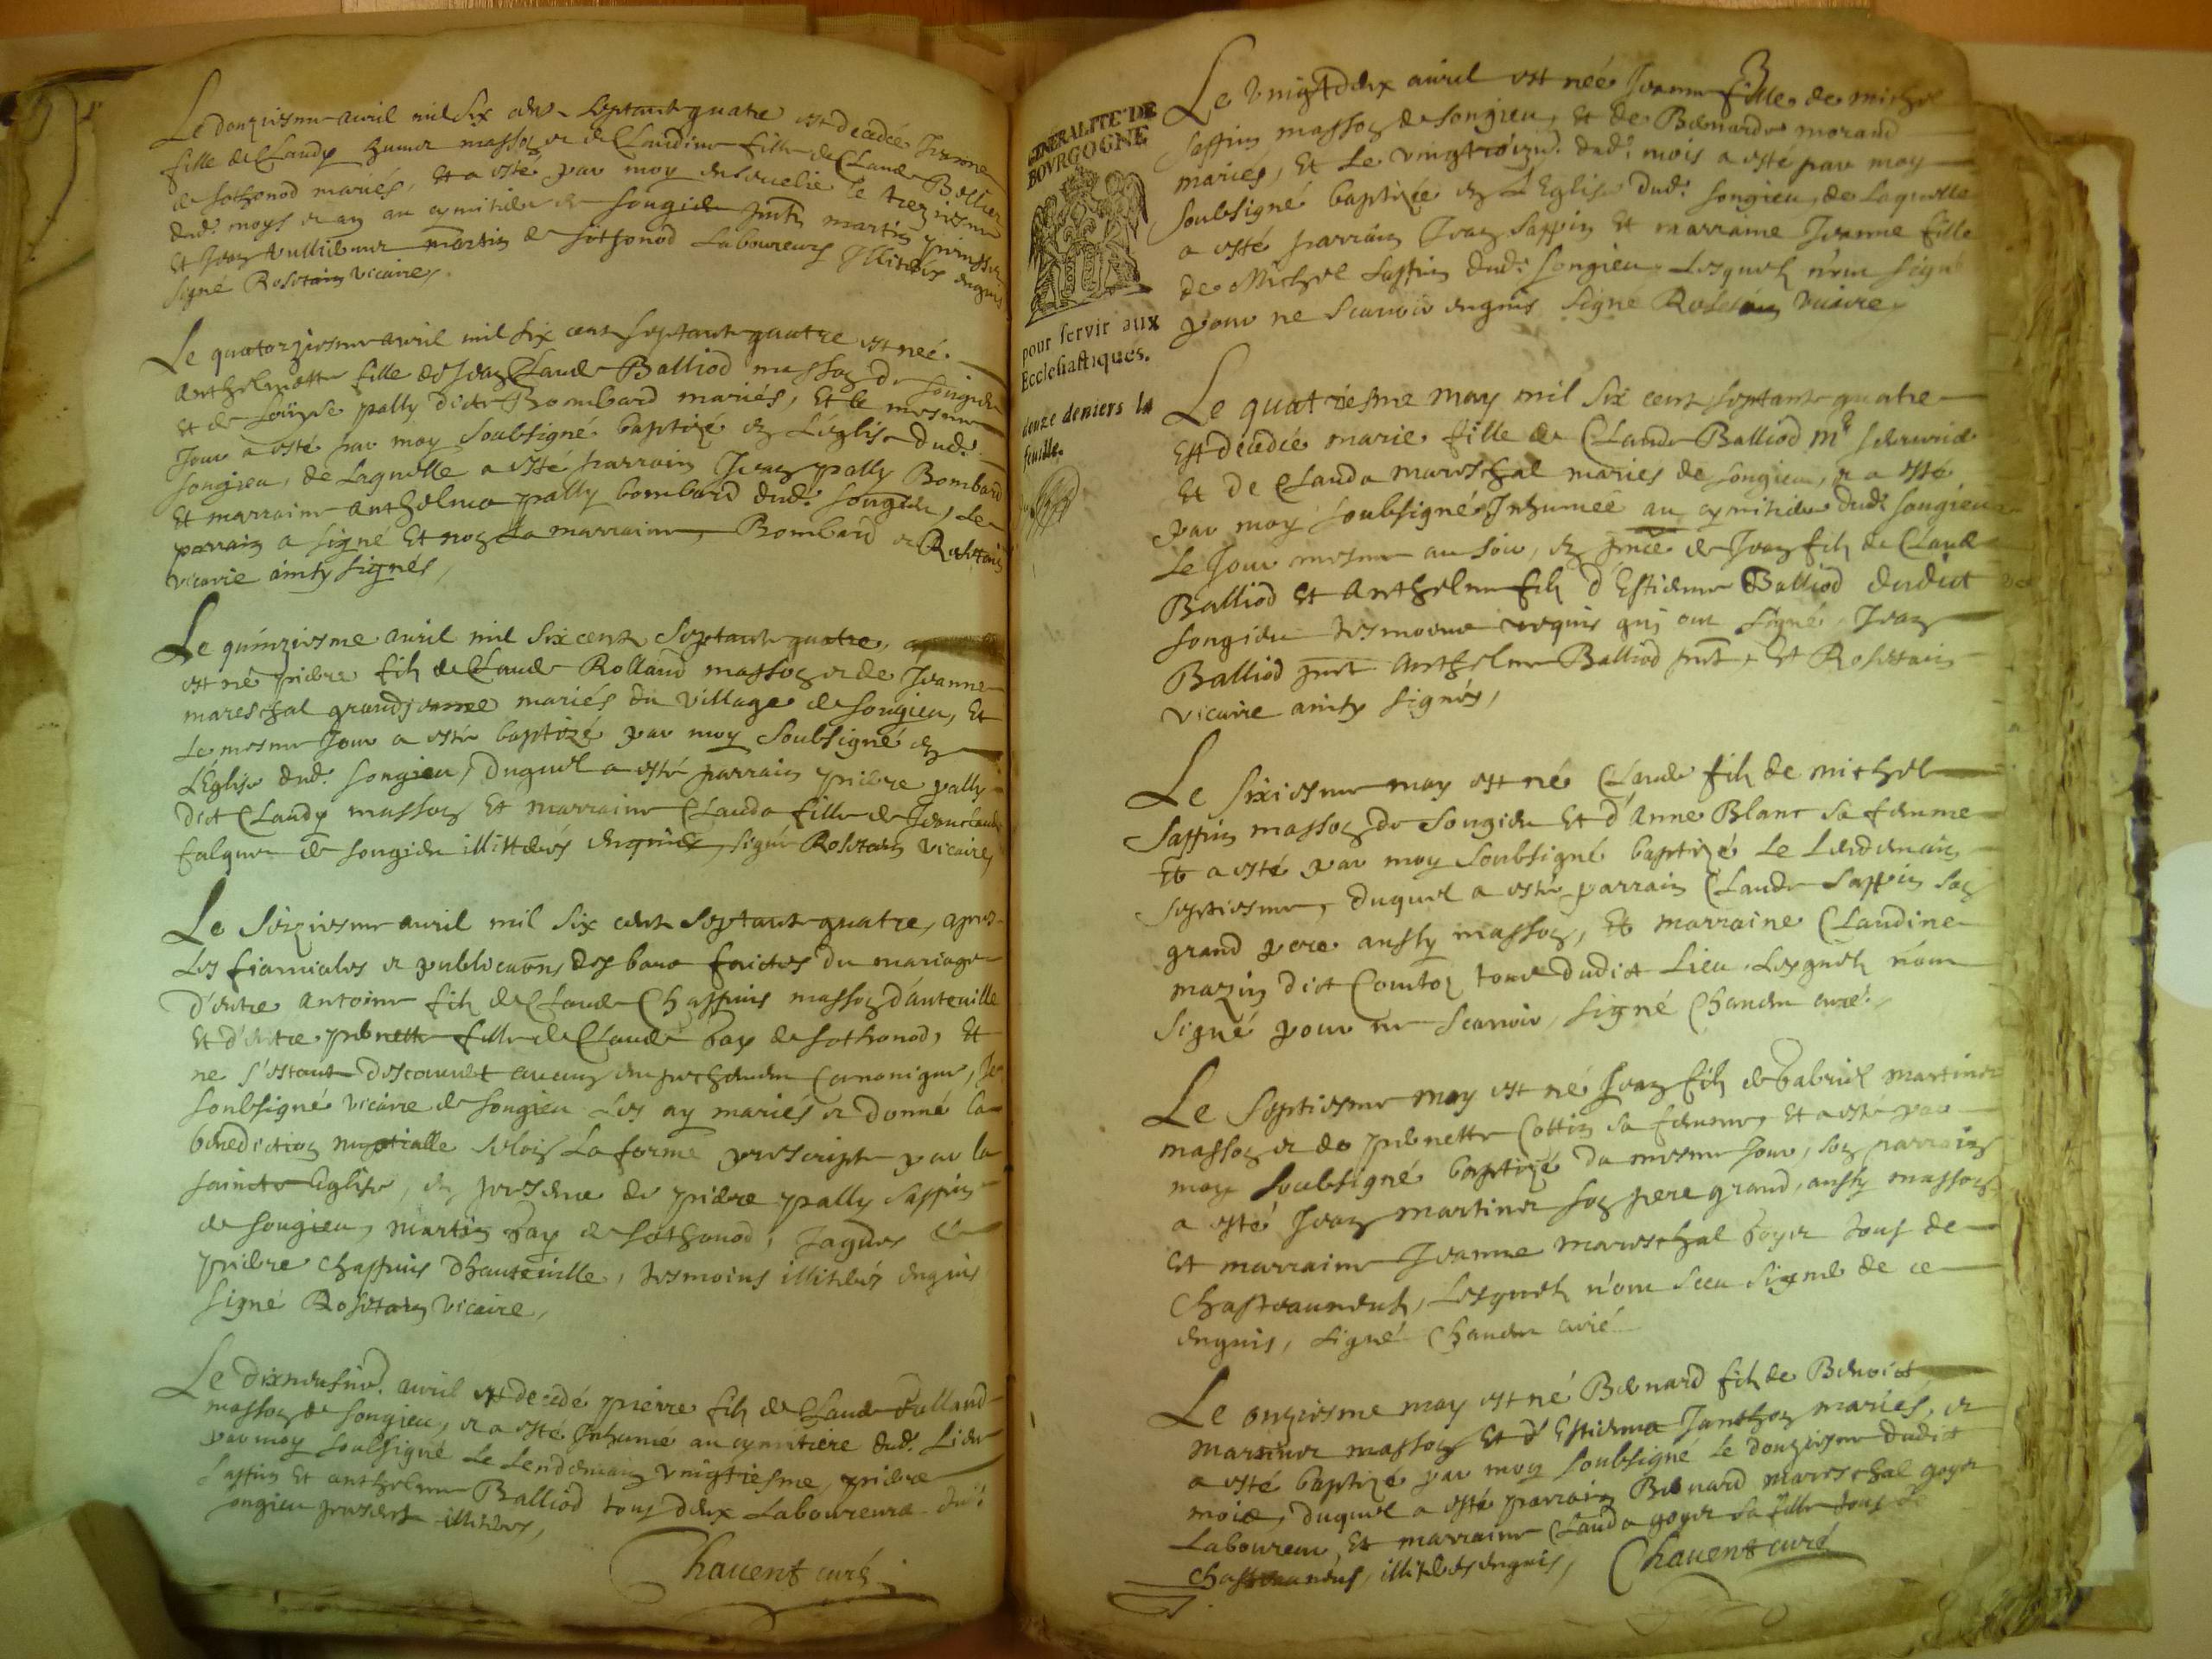 Le douziesme avril mil six cens septante quatre est decedée Jeanne
fille de Claudy masson et de Claudine fille de Claude Bellier
de sothonod mariés, et a esté par moy ensevelie le treziesme
dud. moys et an au cymitiere de songieu pnts martin
Et Jean vulliermer martin de sothonod Laboureurs Illiterés enquis
signé Rosetain vicaire,
Le quatorziesme avril mil six cent septante quatre est neé
anthelmette fille de Jean Claude Balliod masson de songieu
et de Louyse pally dicte Bombard mariés, Et le mesme
Jour a esté par moy soubsigné baptizé en L'église dud.
songieu, de Laquelle a esté parrain Jean pally Bombard
Et marraine anthelma pally bombard dud. songieu, Le
parrain a signé Et non La marraine, Bombard et Rosetain
vicaire ainsy signés,
Le quinziesme avril mil six cent septante quatre,
est né pierre fils de Claude Rolland masson et de Jeanne
mareschal grandjeanne mariés du village de songieu, Et
Le mesme Jour a esté baptizé par moy soubsigné en
L'Eglise dud. songieu, Duquel a esté parrain pierre pally
dict Claudy masson Et marraine Clauda fille de Jeanclaude
falque de songieu illitterés enquis, signé Rosetain vicaire,
Le seiziesme avril mil six cent septante quatre, apres
Les fianciales et publications des bans faictes du mariage
d'entre antoine fils de Claude Chappuis masson d'auteville
Et d'entre pernette fille de Claude Gay de sothonod, Et
ne s'estant descouvert aucung empeschement Canonique, Je
soubsigné vicaire de songieu Les ay mariés et donné la
benediction nuptialle selon La forme prescripte par la
saincte Eglise, en presence de pierre pally sappin
de songieu, martin Gay de sothonod, Jaques Et
pierre Chappuis d'hauteville, tesmoins illiterés enquis
signé Rosetain vicaire,
Le dixneufvie. avril est decedé pierre fils de Claude Rolland
masson de songieu, et a esté Inhumé au cymitiere dud. Lieu
par moy soubsigné Le Lendemain vingtiesme, pierre
sappin Et anthelme Balliod tous deux Laboureurs dud.
songieu presents illiterés,
Chavent curé
GENERALITE DE
BOVRGOGNE
pour servir aux
Ecclesiastiques.
douze deniers la
feuille.
Le vingtdeux avril est née Jeanne fille de michel
sappin masson de songieu, Et de Bernarde morand
mariés, Et Le vingtroizie. dud. mois a esté par moy
soubsigné baptizée en L'Eglise dud. songieu, de Laquelle
a esté parrain Jean sappin Et marraine Jeanne fille
de Michel sappin dud. songieu, Lesquels n'ont signé
pour ne scavoir enquis signé Rosetain vicaire
Le quatriesme may mil six cent septante quatre
Est decedée marie fille de Claude Balliod me serrurier
Et de Clauda mareschal mariés de songieu, et a esté
par moy soubsigné Inhumée au cymitiere dud. songieu
Le Jour mesme au soir, en pnce de Jean fils de Claude
Balliod Et anthelme fils d'Estienne Balliod dudict
songieu tesmoins requis qui ont signé, Jean
Balliod pnt anthelme Balliod pnt, Et Rosetain
vicaire ainsy signés,
Le sixiesme may est né Claude fils de michel
sappin masson de songieu Et d'anne Blanc sa femme
Et a esté par moy soubsigné baptizé Le Lendemain
septiesme, duquel a esté parrain Claude sappin son
grand pere aussy masson, Et marraine Claudine
mazin dict Comton tous dudict Lieu Lesquels n'ont
signé pour ne scavoir, signé Chavent curé,
Le septiesme may est né Jean fils de Gabriel martiner
masson et de pernette Cottin sa femme, Et a esté par
moy soubsigné baptizé du mesme Jour, son parrain
a esté Jean martiner son pere grand, aussy masson
Et marraine Jeanne mareschal goyer tous de
Chasteauneuf, Lesquels n'ont sceu signer de ce
enquis, signé Chavent curé
Le onziesme may est né Bernard fils de Benoict
martiner masson Et d'Estienna Janthon mariés, et
a esté baptizé par moy soubsigné Le douziesme dudict
mois, duquel a esté parrain Bernard mareschal goyer
Laboureur, Et marraine Clauda goyer sa fille tous de
Chasteauneuf, illiterés enquis, Chavent curé